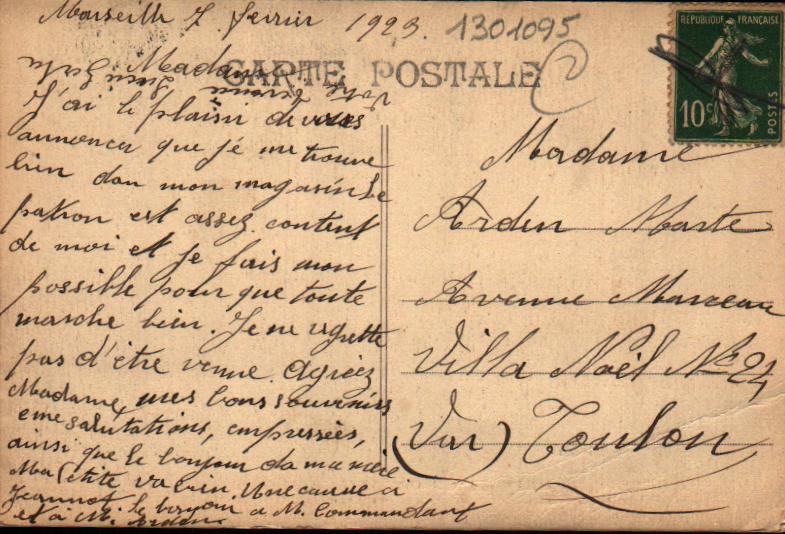 Marseille 7 fevrier 1923.
1301095
CARTE POSTALE
RÉPUBLIQUE FRANÇAISE
10c
POSTES
Madame
J'ai le plaisir de vous
annoncer que je me trouve
bien dan mon magasin Le
patron est assez content
de moi et je fais mon
possible pour que toute
marche bien. Je ne regrette
pas d'être venue. Agréez
Madame, mes bons souvenirs
salutations, empressées,
ainsi que le bonjour da ma mère
Ma petite va bien. Une caresse à
Jeannot le bonjour a M. Commandant
et à M. Arden
Madame
Arden Marte
Avenue Marceau
Villa Noël No 24
(Var) Toulon